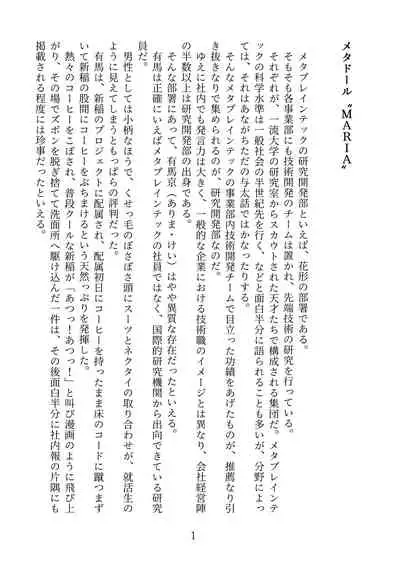 メタドール “MARIA”
メタブレインテックの研究開発部といえば、花形の部署である。
そもそも各事業部にも技術開発のチームは置かれ、先端技術の研究を行っている。
それぞれが、一流大学の研究室からスカウトされた天才たちで構成される集団だ。メタブレインテ
ックの科学水準は一般社会の半世紀先を行く、などと面白半分に語られることも多いが、分野によっ
ては、それはあながちただの与太話ではなかったりする。
そんなメタブレインテックの事業部内技術開発チームで目立った功績をあげたものが、推薦なり引
き抜きなりで集められるのが、研究開発部なのだ。
ゆえに社内でも発言力は大きく、一般的な企業における技術職のイメージとは異なり、会社経営陣
の半数以上は研究開発部の出身である。
そんな部署にあって、有馬京（ありま・けい）はやや異質な存在だったといえる。
有馬は正確にいえばメタブレインテックの社員ではなく、国際的研究機関から出向できている研究
員だ。
男性としては小柄なほうで、くせっ毛のぼさぼさ頭にスーツとネクタイの取り合わせが、就活生の
ように見えてしまうともっぱらの評判だった。
有馬は、新稲のプロジェクトに配属され、配属初日にコーヒーを持ったまま床のコードに蹴つまず
いて新稲の股間にコーヒーをぶちまけるという天然っぷりを発揮した。
熱々のコーヒーをこぼされ、普段クールな新稲が「あつっ！あつっ！」と叫び漫画のように飛び上
がり、その場でズボンを脱ぎ捨てて洗面所へ駆け込んだ一件は、その後面白半分に社内報の片隅にも
掲載される程度には珍事だったといえる。
1